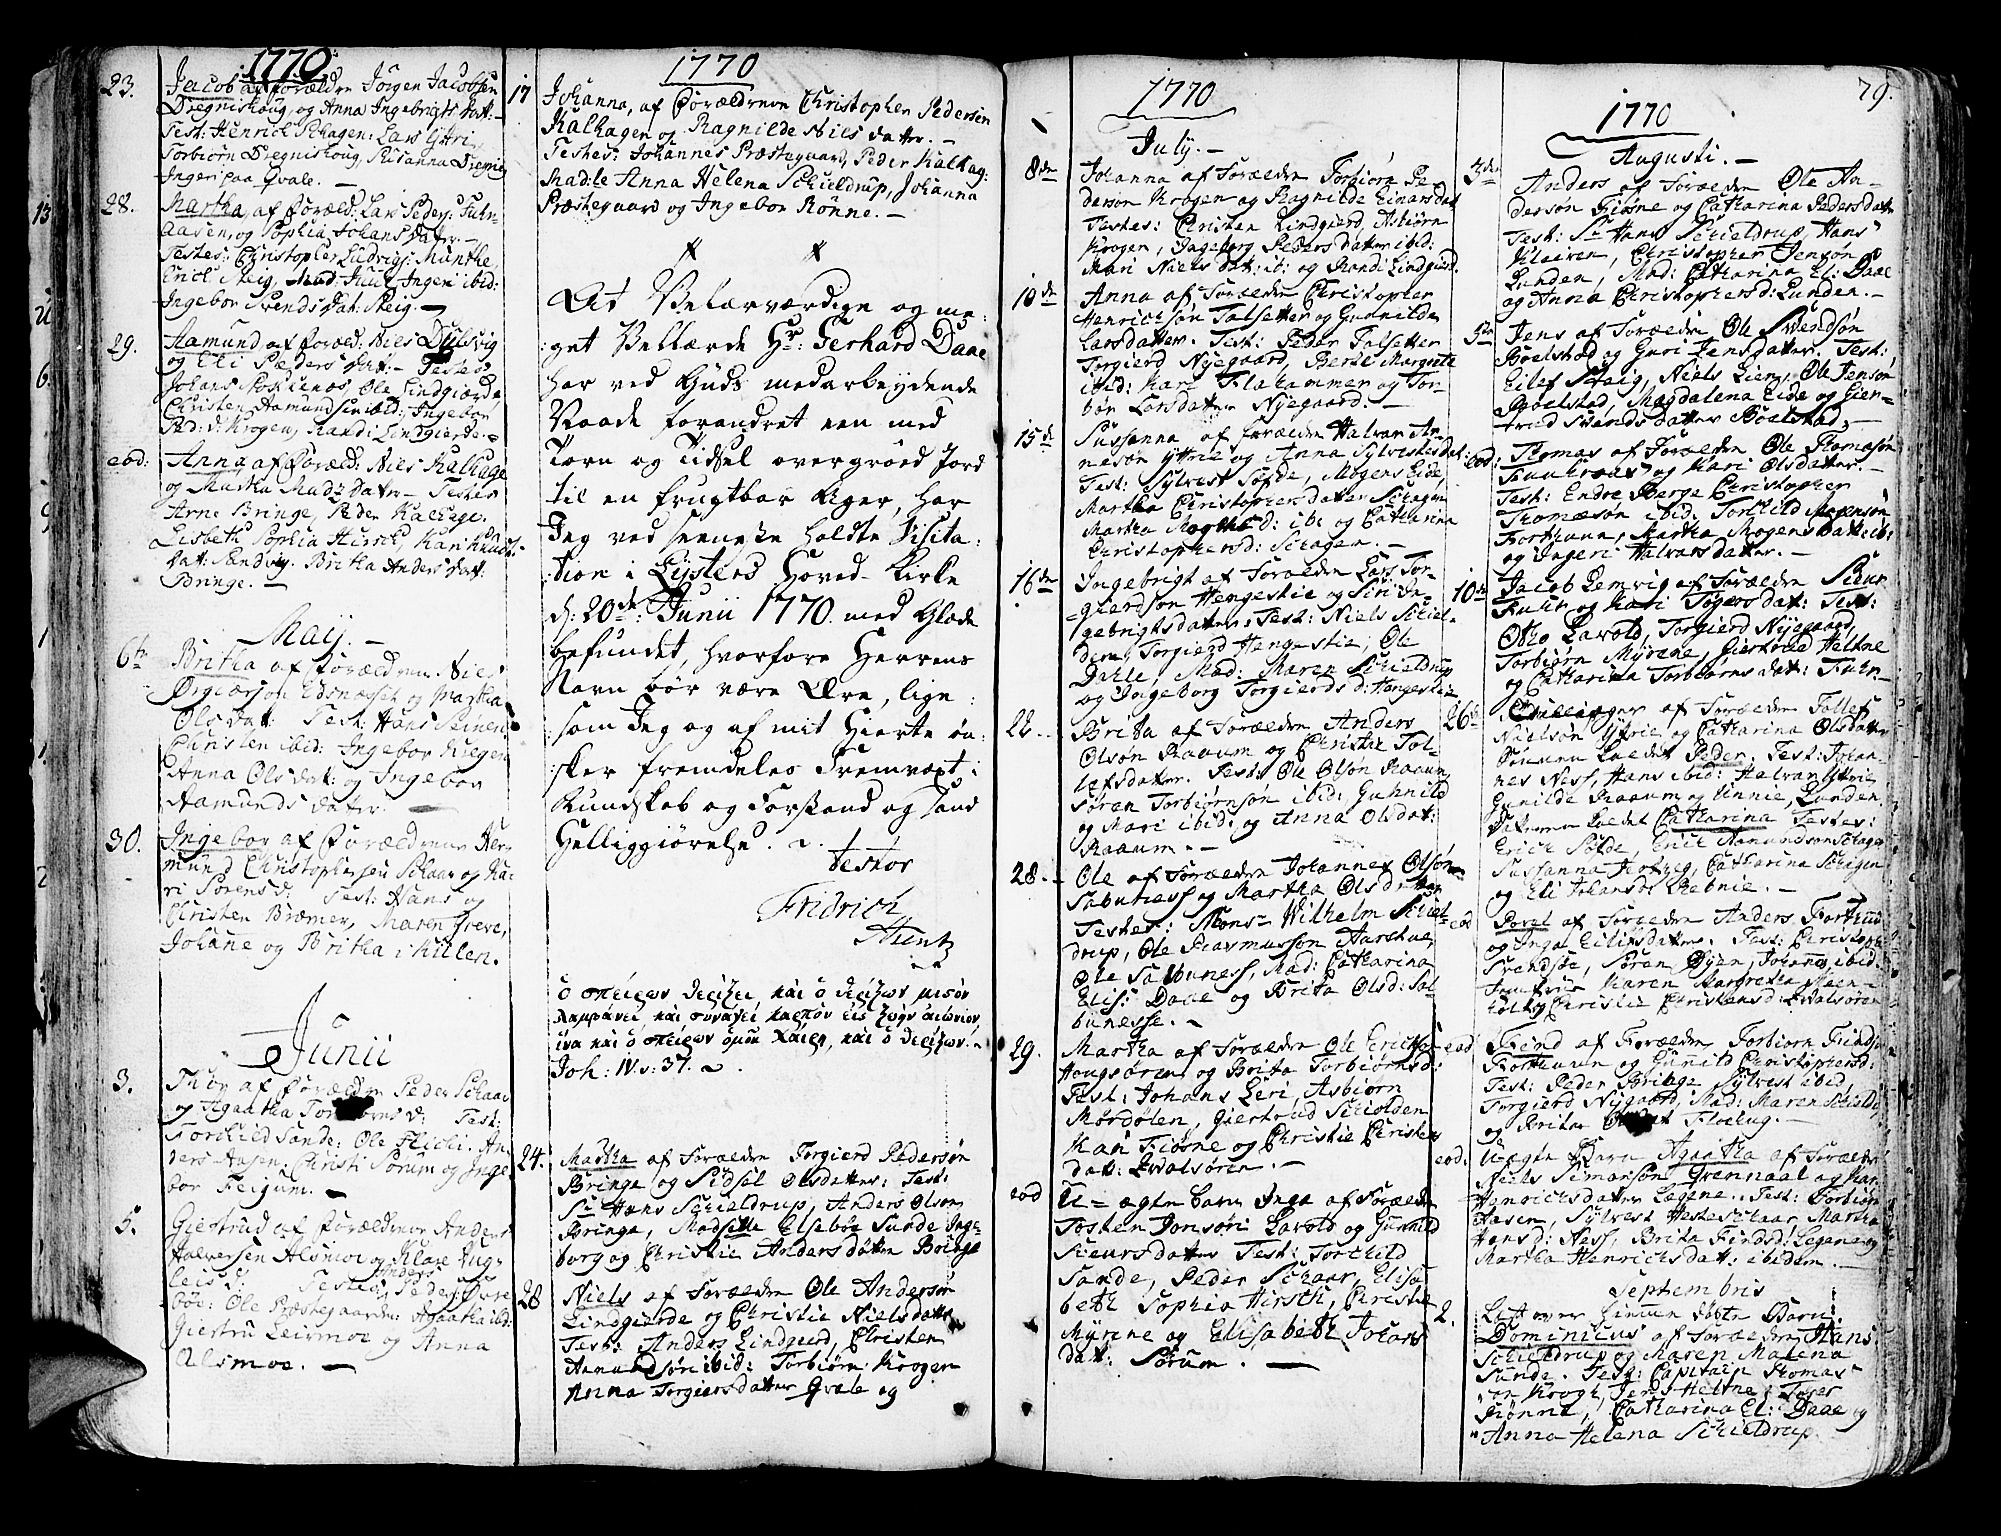 1770
23. Jacob af Forældre Jörgen Jacobsen
Dregniskoug, og Anna Ingebrigts Dat:
Test: Henrich Schagen: Lars Yttri,
Torbiörn Dregniskoug, Susanna Dregnie
Ingeri paa Qvale. —
28. Martha, af Foræld: Lars Peders:
aasen, og Sophia Johans Dater. —
Testes: Christopher Ludvigs: Munthe,
Erich Steig, Juul, Ingeri ibid:
Ingebor Svends Dat: Steig. —
29. Aamund af Foræld: Niels
og Eli Peders Dat: — Testes
Johans Ole Lindgiærde
Christen Aamundsen ibid: Ingebor
Ped: d: Krogen, Randi Lindgierde. —
eod: Anna af Foræld: Niels Kalhage
og Martha Madz Dater — Testes
Arne Bringe, Peder Kalhage.
Lisbeth Sophia Hirsch, Kari Knuds
dat: Sandvig. Britha Anders Dat:
Bringe. —
Maij. —
6te Britha af Forældrene Niels
og Martha
Ols Dat: Test: Hans
Christen ibid: Ingebor
Anna Ols Dat: og Ingebor
Aamunds Dater. —
30. Ingebor af Forældrene Her-
mund Christophersen Schaar og Ka-
ri Sörensd. Test: Hans og
Christen Bræmer, Maren Greve,
Johane og Britha i Killen.
Junii
3. Thor af Forældre Peder Schaar
og Agaatha d: Test:
Torchild Sande: Ole An-
ders Aasen, Christi Sorum og Inge-
bor Feigum. —
5. Giertrud af Forældrene Anders
Halversen Alsmoe og Klare
d: Testes Anders Peders Övre
böe: Ole Præstegaarden: Agaatha ibid:
Giertru Leirmoe og Anna
Alsmoe. —
1770
17 Johanna, af Forældrene Christopher Pedersen
Kalhagen og Ragnilde Niels datter. —
Testes: Johannes Præstegaard, Peder Kalhag:
Mad:le Anna Helena Schieldrup, Johanna
Præstegaard og Ingebor Rönne. —
At Velærværdige og me:
:get Vellærde Hr: Gerhard Daae
har ved Guds medarbeydende
Naade forandret een med
Torn og Tidsel overgröed Jord
til en frugtbar Ager, har
Jeg ved seeneste holdte Visita:
:tion i Lÿsters Hoved-Kirke
d: 20de: Junii 1770. med Glæde
befundet, hvorfore Herrens
Navn bör være Ære, lige:
:som Jeg og af mit Hierte ön:
:sker fremdeles Fremvext i
Kundskab og Forstand og sand
Helliggiörelse.
Testor
Fridrich
Arentz
ὁ σπείρων θερίζει, καὶ ὁ θερίζων μισθὸν
λαμβάνει καὶ συνάγει καρπὸν εἰς ζωὴν αἰώνιον
ἵνα καὶ ὁ σπείρων ὁμοῦ χαίρῃ, καὶ ὁ θερίζων.
Joh: IV. v: 37.
24. Martha af Forældre Torgierd Pedersön
Bringe og Sidsel Olsdatter: Test:
Sr Hans Schieldrup, Anders Olsön
Bringe, Madselle Elseböe Sunde Inge-
borg og Christie Anders dötter Bringe
28 Niels af Forældre Ole Andersön
Lindgierde og Christie Nielsdatter
Test: Anders Lindgierd, Christen
Aamundsön ibid: Torbiörn Krogen
Anna Torgiersdatter Qvale og
1770
July. —
8de Johanna af Forældre Torbiörn Pe-
dersön Krogen og Ragnilde Einarsdat
Testes: Christen Lindgierd, Asbiörn
Krogen, Ingeborg Peders datter ibid:
Mari Niels dat: ib: og Randi Lindgierd.
10de Anna af Forældre Christopher
Henrichsön Talsetter og Gunilde
Larsdatter. Test: Peder Talsetter
Torgierd Nyegaard, Berte Margrete
ibid: Kari Flahammer og Tor-
bör Larsdatter Nyegaard. —
15de Sussanna af forældre Halvar Ar-
nesön Yttrie og Anna Sylvestersdat:
Test: Sylvest Söfde, Mogens Eide,
Martha Christophersdatter Schagen
Martha d: ib: og Catharina
Christophersd: Schagen. —
16de Ingebrigt af Forældre Lars Tor-
gierdsön Hengestie og Siri In-
gebrigtsdatter: Test: Niels Schiel-
dern, Torgierd Hengestie, Ole
Dahle, Mad: Maren Schieldrup
og Ingeborg Torgierds d: Hengestie
22. Brita af Forældre Anders
Olsön Raaum og Christie Tol-
lefsdatter. Test: Ole Olsön Raaum,
Sören Torbiörnsön ibid: Gunnild
og Mari ibid: og Anna Olsdat:
Raaum. —
28. Ole af Forældre Johannes Olsön
Salbuness og Martha Olsdatter
Testes: Mons Wilhelm Schiel-
drup, Ole Rasmussön Aarskue,
Ole Salbuness, Mad: Catharina
Elis: Daae og Brita Olsd: Sal-
bunesse. —
29. Martha af Forældre Ole Erichsön
Hougsören og Brita Torbiörnsd:
Test: Johans Leri, Asbiörn
Mördölen, Giertrud Schiolden
Kari Fiösne og Christie Christens
dat: Qvalsören. —
eod U-ægte barn Inga af Forældre
Tosten Jonsön Lavold og Gunnild
Siursdatter Test: Torchild
Sande, Peder Schaar, Elisa-
beth Sophia Hirsch, Christie
Myrene og Elisabeth Johans
dat: Sorum. —
79.
1770
Augusti. —
3de Anders af Forældre Ole An-
dersön Fiösne og Catharina Pedersdatter
Test: Sr Hans Schieldrup, Hans
Christopher Jensön
Lunden, Mad: Catharina El: Daae
og Anna Christophersd: Lunden. —
5te Jens af Forældre Ole Svendsön
Böelstad og Guri Jensdatter. Test:
Eilef Steig, Niels Lien, Ole Jensön
Böelstad, Magdalena Eide og Gier-
trud Svends datter Böelstad. —
eod: Thomas af Forældre Ole Thomesön
og Kari Olsdatter. —
Test: Endre Berge Christopher
Thomæsön ibid: Torchild Mogensön
Forthuun, Martha Mogens Dat: ib:
og Ingeri Halvars datter. —
10de Jacob Lemvig af Forældre Siur
Fuhr og Kari Togersdat: Test:
Otto Lavold, Torgierd Nyegaard,
Torbiörn Myrene, Giertrud Heltne
og Catharina Torbiörns dat: Fuhr —
26de Tvillinger af Forældre Tollef
Nielsön Yttrie og Catharina Olsdatter
Sönnen kaldet Peder. Test: Johan-
nes Ness, Hans ibid: Halvar Yttrie
Gunilde Raaum og Unnie, Lunden,
Datteren kaldet Catharina Testes:
Erich Söfde, Erich Aamundsön Schagen
Sussanna Catharina Schagen
og Eli Johansd: Rebnie. —
eod Povel af Forældre Anders Forthuun
og Inga Eilifsdatter. Test: Christoph
Svendsöe, Sören Öyen, Johann ibid.
Karen Margretha Meen-
Christie Christensd: Qvalsören
eod Find af Forældre Torbiörn Finds:
Forthuun og Gunild Christophersd:
Test: Peder Bringe Sylvest ibid,
Torgierd Nygaard, Mad: Maren Schield:
og Brita Floeug. —
eod: Uægte Barn Agaatha af Forældre
Niels Simonsön Grennaal og Kari
Henrichsdatter Legene. Test: Torbiörn
Aasen, Sylvest Hesteschaar Martha
Hansd: Ness, Brita Findsd: Legene og
Martha Henrichsdatt: ibidem. —
Septembris
2. Læst over hiemme döbte Barn
Dominicus af Forældre Hans
Schieldrup og Maren Malena
Sunde. Test: Capitain Thomas
von Krogh, Jens Heltne,
Rönne, Catharina El: Daae og
Anna Helena Schieldrup.